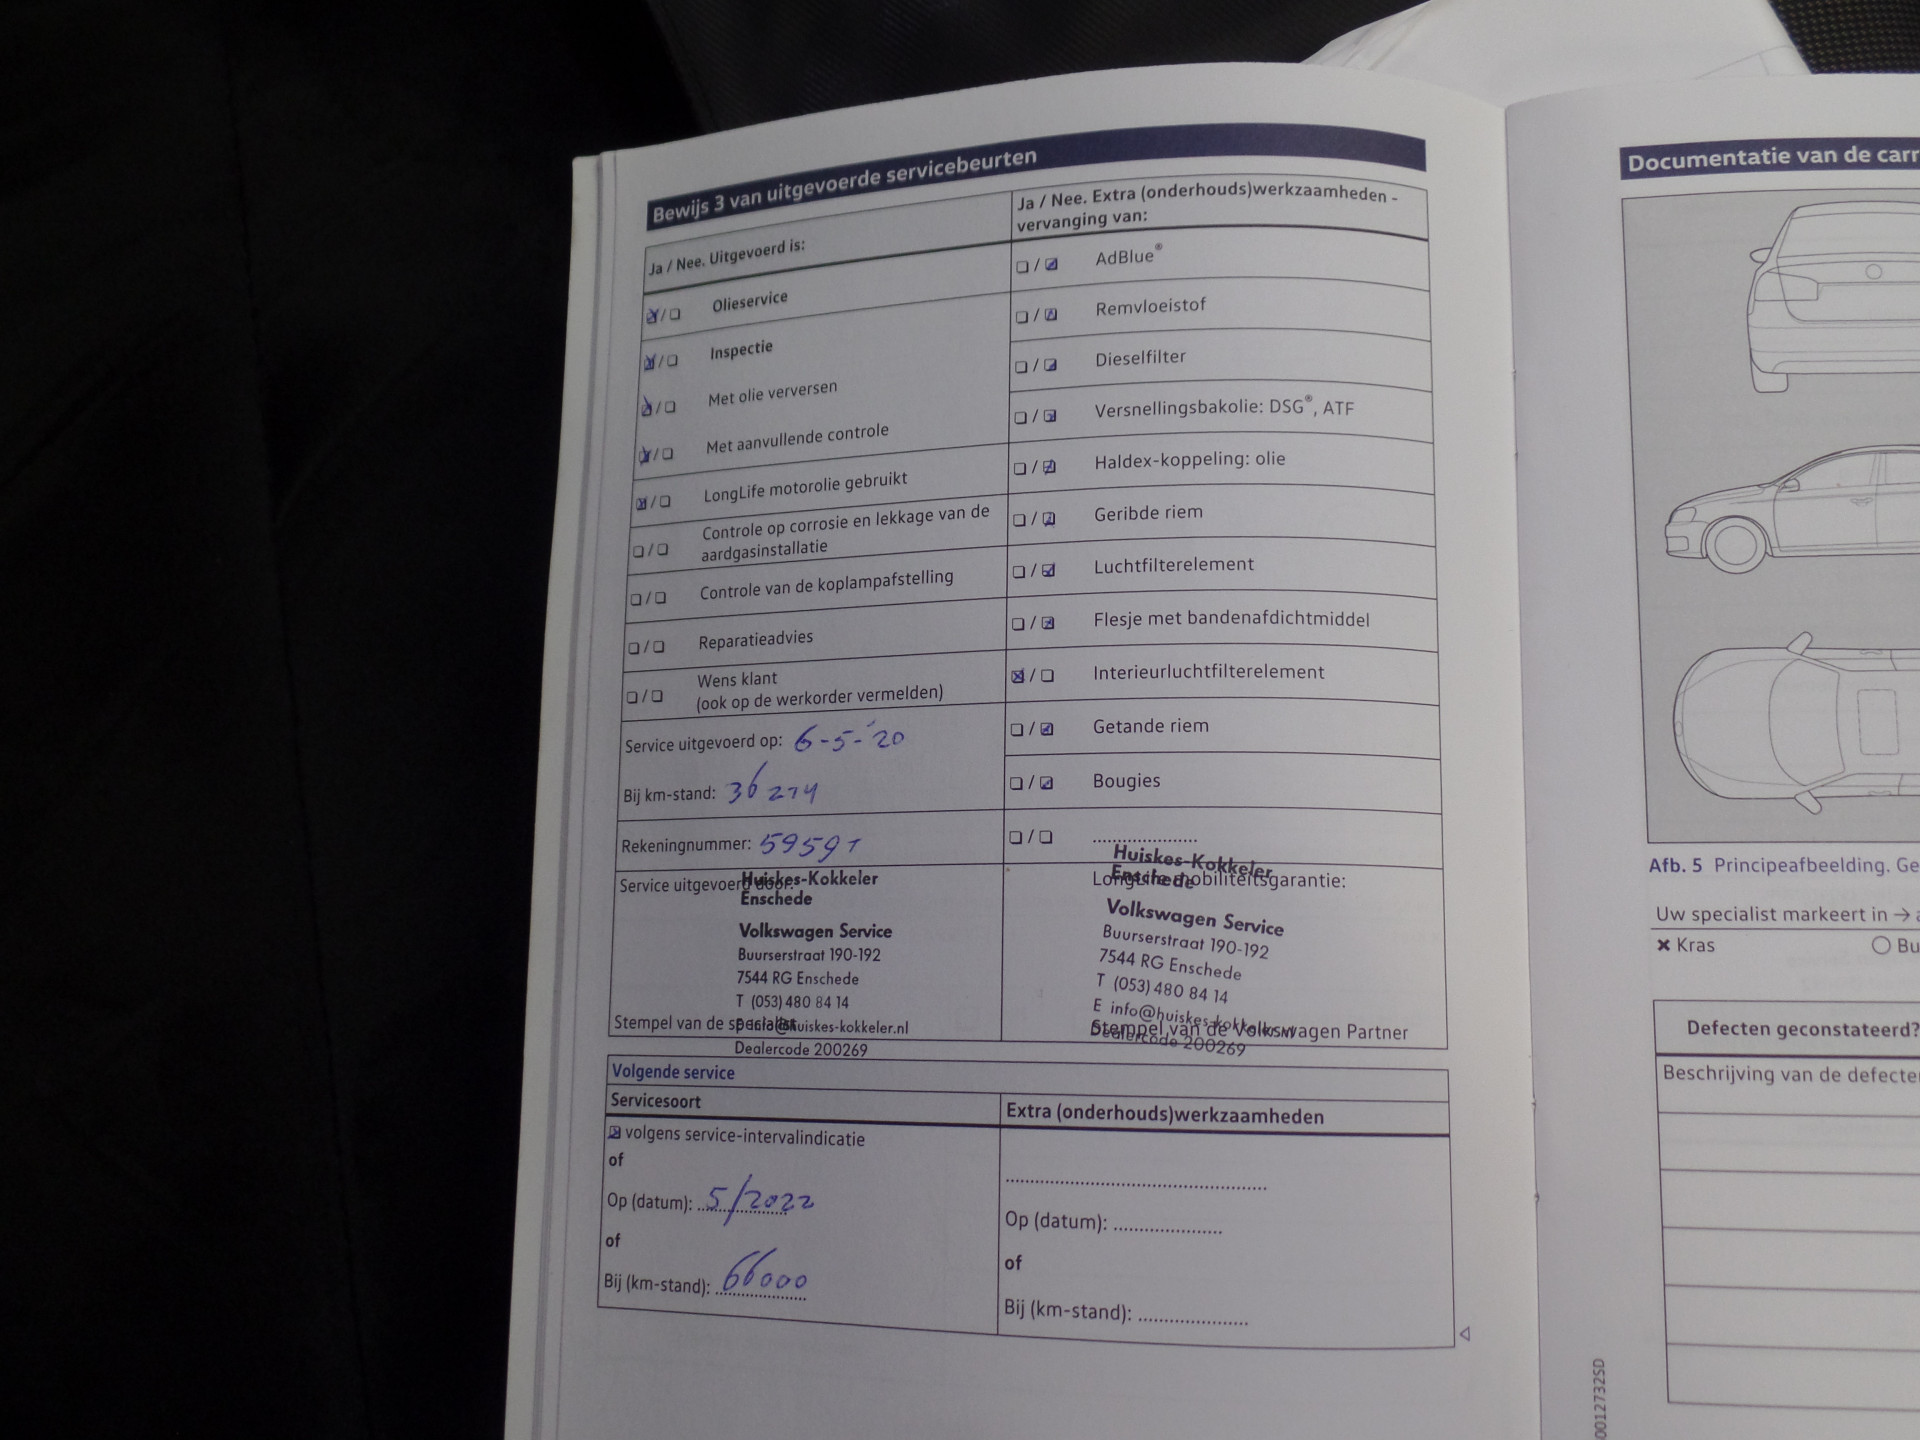 Bewijs 3 van uitgevoerde servicebeurten
Ja / Nee. Uitgevoerd is:
Olieservice
Inspectie
Met olie verversen
Met aanvullende controle
LongLife motorolie gebruikt
Controle op corrosie en lekkage van de
aardgasinstallatie
Controle van de koplampafstelling
Reparatieadvies
Wens klant
(ook op de werkorder vermelden)
Service uitgevoerd op: 6-5-'20
Bij km-stand: 36 274
Rekeningnummer: 59591
Service uitgevoerd door:
Huiskes-Kokkeler
Enschede
Volkswagen Service
Buurserstraat 190-192
7544 RG Enschede
T (053) 480 84 14
E info@huiskes-kokkeler.nl
Stempel van de specialist
Dealercode 200269
Ja / Nee. Extra (onderhouds)werkzaamheden -
vervanging van:
AdBlue®
Remvloeistof
Dieselfilter
Versnellingsbakolie: DSG®, ATF
Haldex-koppeling: olie
Geribde riem
Luchtfilterelement
Flesje met bandenafdichtmiddel
Interieurluchtfilterelement
Getande riem
Bougies
....................
Huiskes-Kokkeler
Enschede
LongLife mobiliteitsgarantie:
Volkswagen Service
Buurserstraat 190-192
7544 RG Enschede
T (053) 480 84 14
E info@huiskes-kokkeler.nl
Stempel van de Volkswagen Partner
Dealercode 200269
Volgende service
Servicesoort
volgens service-intervalindicatie
of
Op (datum): 5/2022
of
Bij (km-stand): 66000
Extra (onderhouds)werkzaamheden
Op (datum): ....................
of
Bij (km-stand): ....................
Documentatie van de carr
Afb. 5 Principeafbeelding. Ge
Uw specialist markeert in → a
× Kras
○ Bu
Defecten geconstateerd?
Beschrijving van de defecte
0012732SD